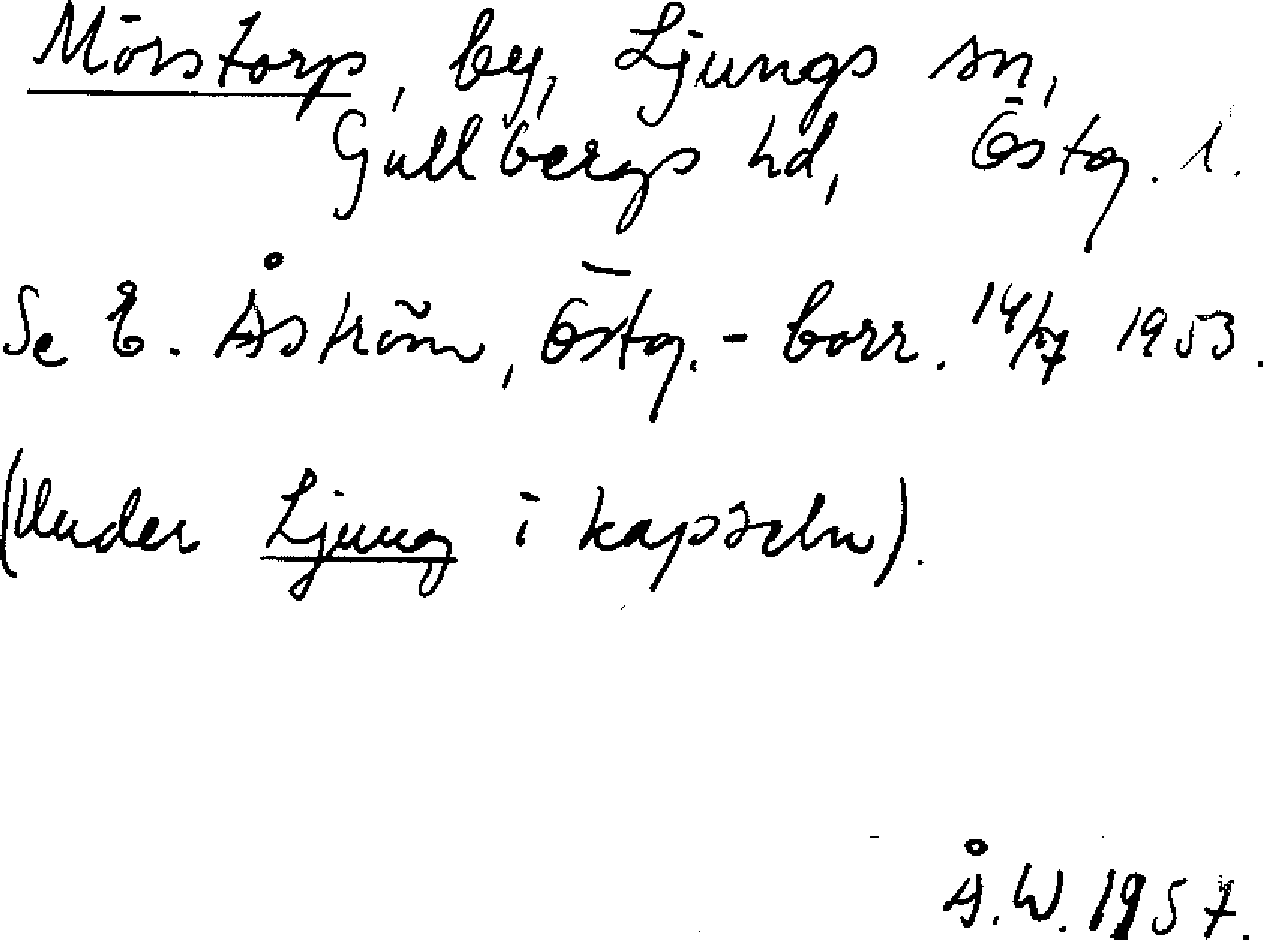 Mörstorp, by, Ljungs sn,
Gullbergs hd, Östg. l.
Se E. Åström, Östg.-Corr. 14/7 1953.
(Under Ljung i kapseln).
Å.W. 1957.